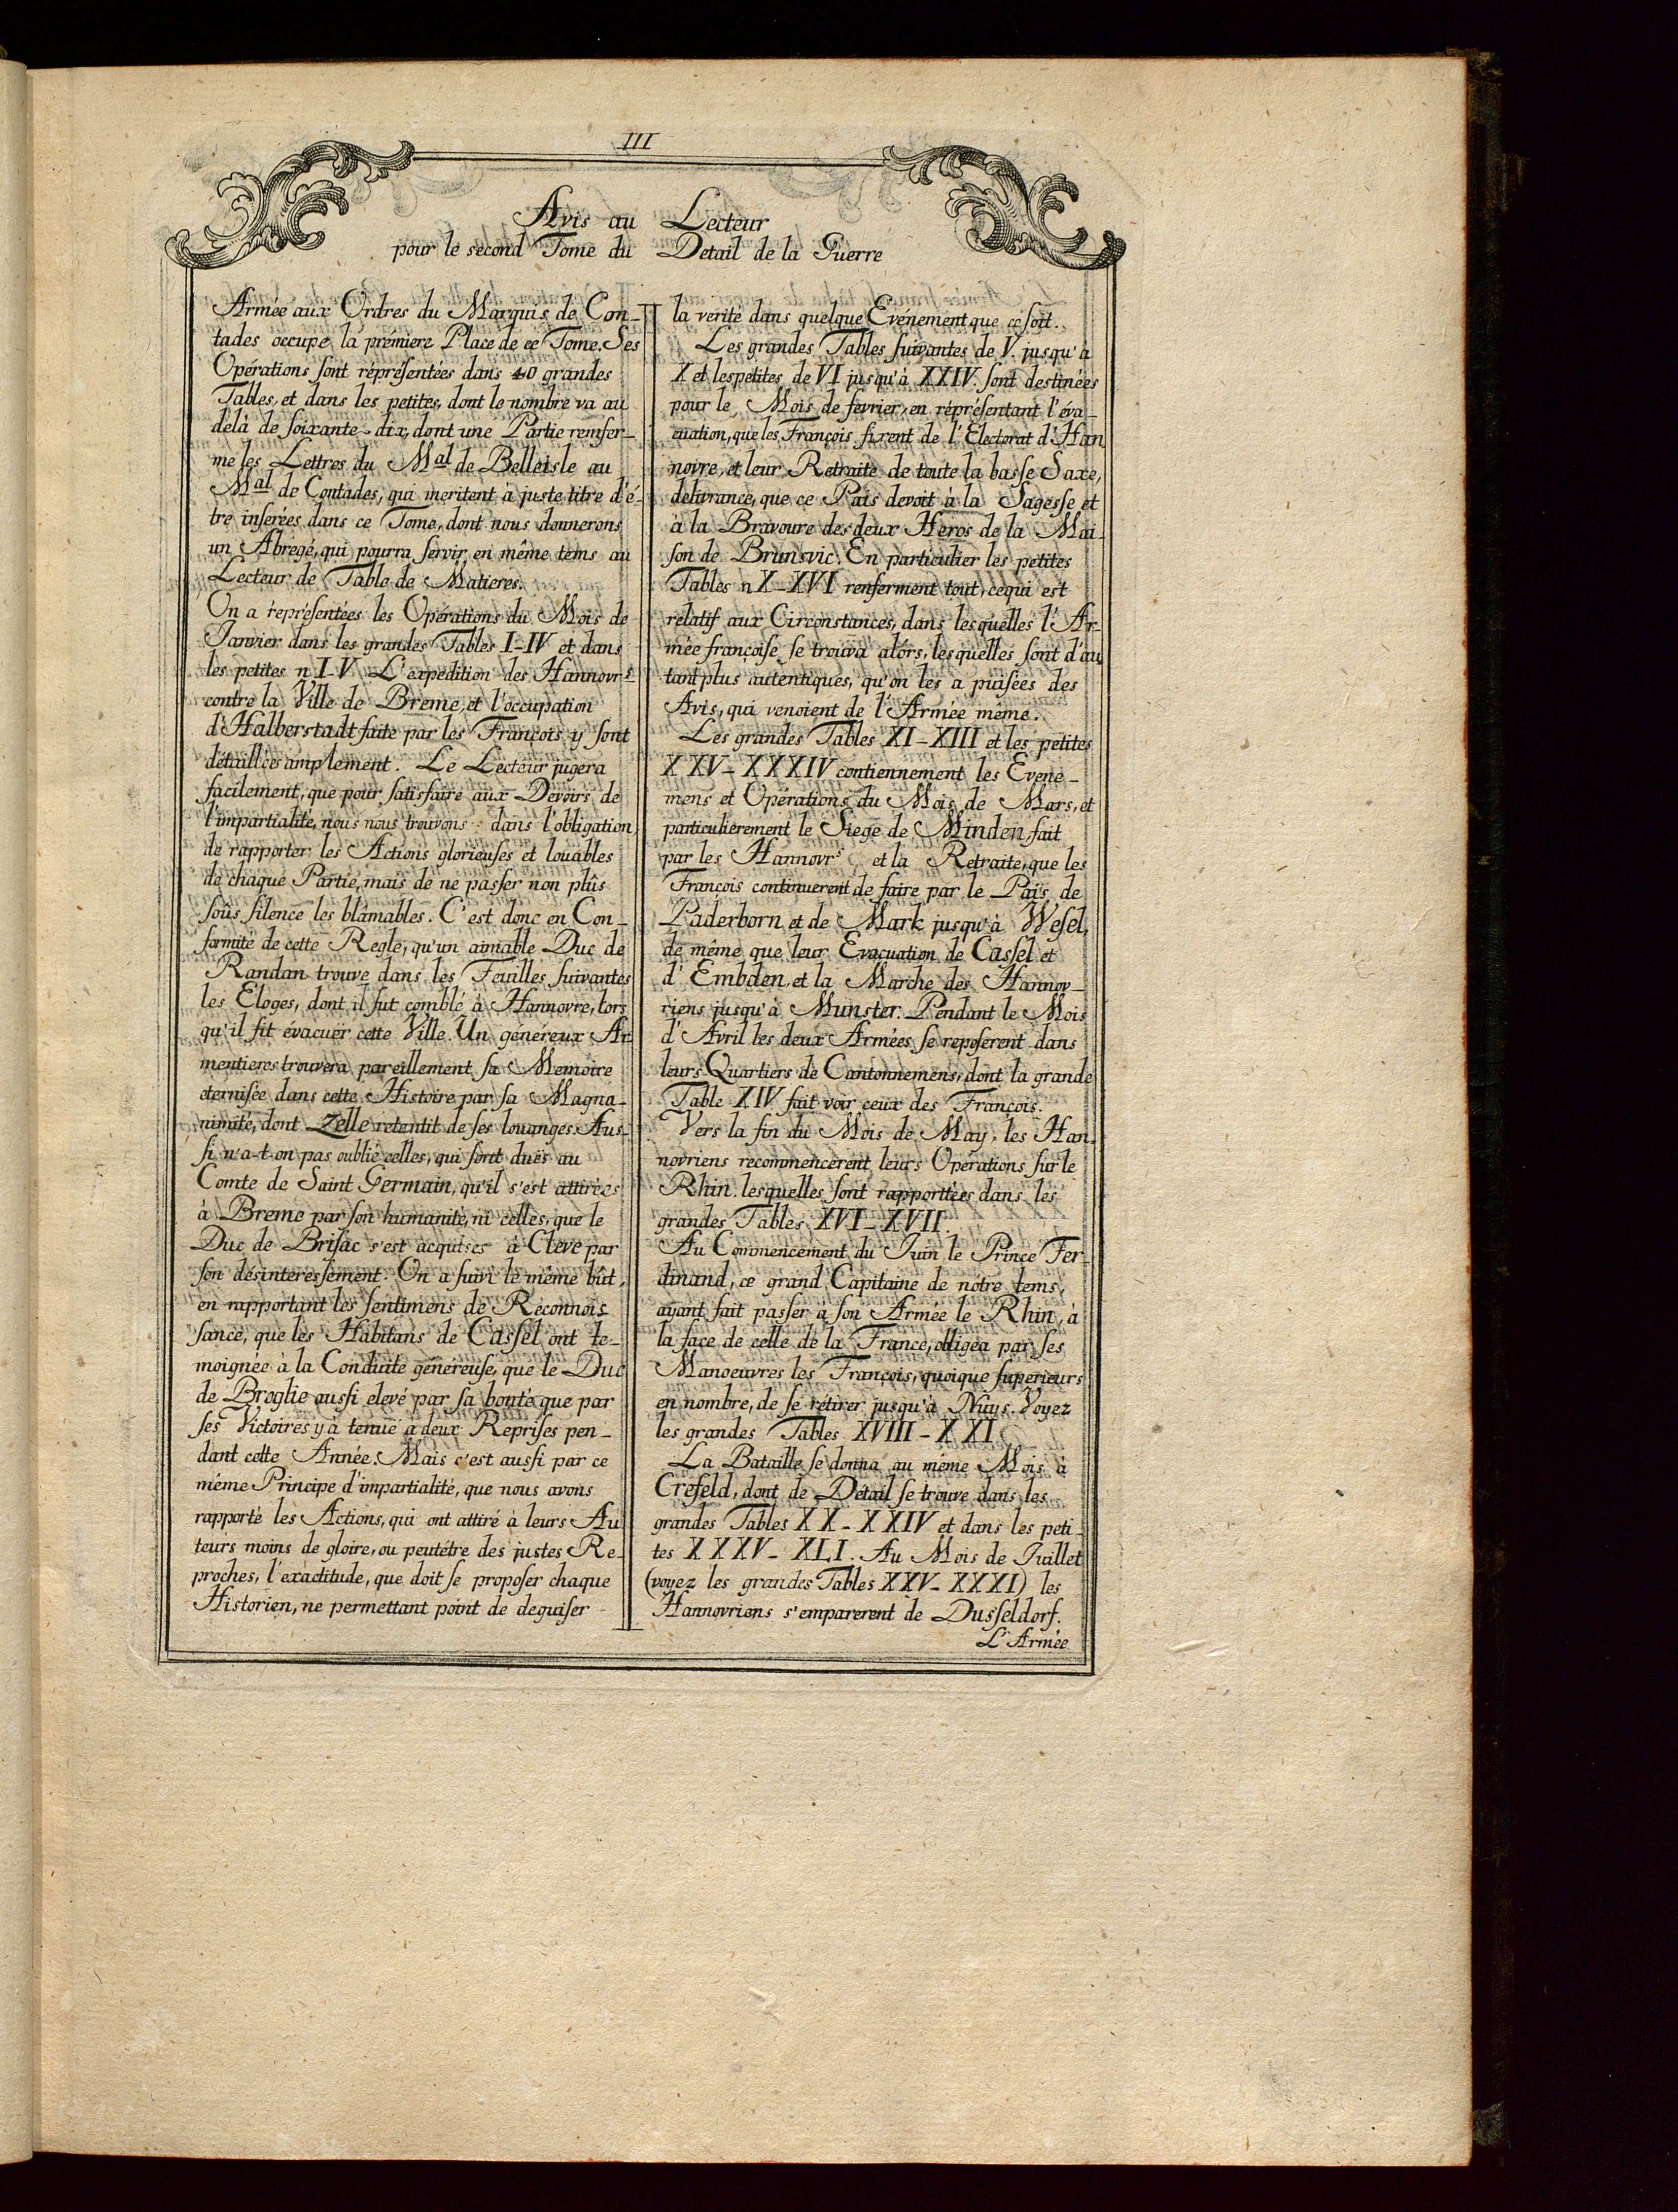 III
Avis au Lecteur
pour le second Tome du Detail de la Guerre
Armée aux Ordres du Marquis de Con-
tades occupe la prémiere Place de ce Tome. Ses
Opérations sont répresentées dans 40 grandes
Tables, et dans les petites, dont le nombre va au
delà de soixante-dix, dont une Partie renfer-
me les Lettres du Mal de Belleisle au
Mal de Contades, qui meritent à juste titre d'é-
tre inserées dans ce Tome, dont nous donnerons
un Abregé, qui pourra servir en même tems au
Lecteur de Table de Matieres.
On a représentées les Opérations du Mois de
Janvier dans les grandes Tables I-IV et dans
les petites n I-V. L'expedition des Hannovrs
contre la Ville de Breme, et l'occupation
d'Halberstadt faite par les François y sont
détaillées amplement. Le Lecteur jugera
facilement, que pour satisfaire aux Devoirs de
l'impartialité, nous nous trouvons dans l'obligation
de rapporter les Actions glorieuses et louables
de chaque Partie, mais de ne passer non plûs
soûs silence les blâmables. C'est donc en Con-
formité de cette Regle, qu'un aimable Duc de
Randan trouve dans les Feuilles suivantes
les Eloges, dont il fut comblé à Hannovre, lors
qu'il fit évacuer cette Ville. Un généreux Ar-
mentieres trouvera pareillement sa Memoire
eternisée dans cette Histoire par sa Magna-
nimité, dont Zelle retentit de ses louanges. Aus-
si n'a-t-on pas oublié celles, qui sont duës au
Comte de Saint Germain, qu'il s'est attirées
à Breme par son humanité, ni celles, que le
Duc de Brisac s'est acquises à Cleve par
son désinteressement. On a suivi le même bût,
en rapportant les sentimens de Reconnois
sance, que les Habitans de Cassel ont te-
moignée à la Conduite généreuse, que le Duc
de Broglie aussi elevé par sa bonté que par
ses Victoires y à tenuë à deux Reprises pen-
dant cette Année. Mais c'est aussi par ce
même Principe d'impartialité, que nous avons
rapporté les Actions, qui ont attiré à leurs Au
teurs moins de gloire, ou peutétre des justes Re-
proches, l'exactitude, que doit se proposer chaque
Historien, ne permettant point de deguiser
la verité dans quelque Evénement que ce soit.
Les grandes Tables suivantes de V. jusqu'à
X et les petites de VI jusqu'à XXIV. sont destinées
pour le Mois de fevrier, en répresentant l'éva-
cuation, que les François firent de l'Electorat d'Han
novre, et leur Retraite de toute la basse Saxe,
delivrance, que ce Païs devoit à la Sagesse et
à la Bravoure des deux Heros de la Mai-
son de Brunsvic. En particulier les petites
Tables n X-XVI renferment tout, cequi est
relatif aux Circonstances, dans lesquelles l'Ar-
mée françoise se trouva alórs, lesquelles sont d'au
tant plus autentiques, qu'on les a puisées des
Avis, qui venoient de l'Armée même.
Les grandes Tables XI-XIII et les petites
XXV-XXXIV contiennement les Evene-
mens et Opérations du Mois de Mars, et
particulierement le Siege de Minden fait
par les Hannovrs et la Retraite, que les
François continuerent de faire par le Païs de
Paderborn et de Mark jusqu'à Wesel,
de même que leur Evacuation de Cassel et
d'Embden, et la Marche des Hannov-
riens jusqu'à Munster. Pendant le Mois
d'Avril les deux Armées se reposerent dans
leurs Quartiers de Cantonnemens, dont la grande
Table XIV fait voir ceux des François.
Vers la fin du Mois de May, les Han-
novriens recommencerent leurs Opérations sur le
Rhin. lesquelles sont rapporttées dans les
grandes Tables XVI-XVII.
Au Commencement du Juin le Prince Fer-
dinand, ce grand Capitaine de nótre tems,
ayant fait passer à son Armée le Rhin, à
la face de celle de la France, obligea par ses
Manoeuvres les François, quoique superieurs
en nombre, de se rétirer jusqu'à Nuys. Voyez
les grandes Tables XVIII-XXI.
La Bataille se donna au même Mois à
Crefeld, dont de Détail se trouve dans les
grandes Tables XX-XXIV et dans les peti-
tes XXXV-XLI. Au Mois de Juillet
(voyez les grandes Tables XXV-XXXI) les
Hannovriens s'emparerent de Dusseldorf.
L'Armée